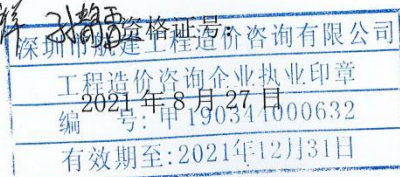 资格证号:
深圳市航建工程造价咨询有限公司
工程造价咨询企业执业印章
2021年8月27日
编 号:甲190344000632
有效期至:2021年12月31日